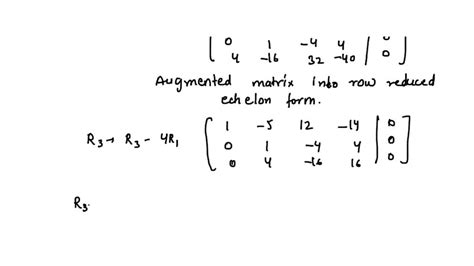 0 1 -4 4 | 0
4 -16 32 -40 | 0
Augmented matrix into row reduced
echelon form.
1 -5 12 -14 | 0
R₃→ R₃ - 4R₁ 0 1 -4 4 | 0
0 4 -16 16 | 0
R₃